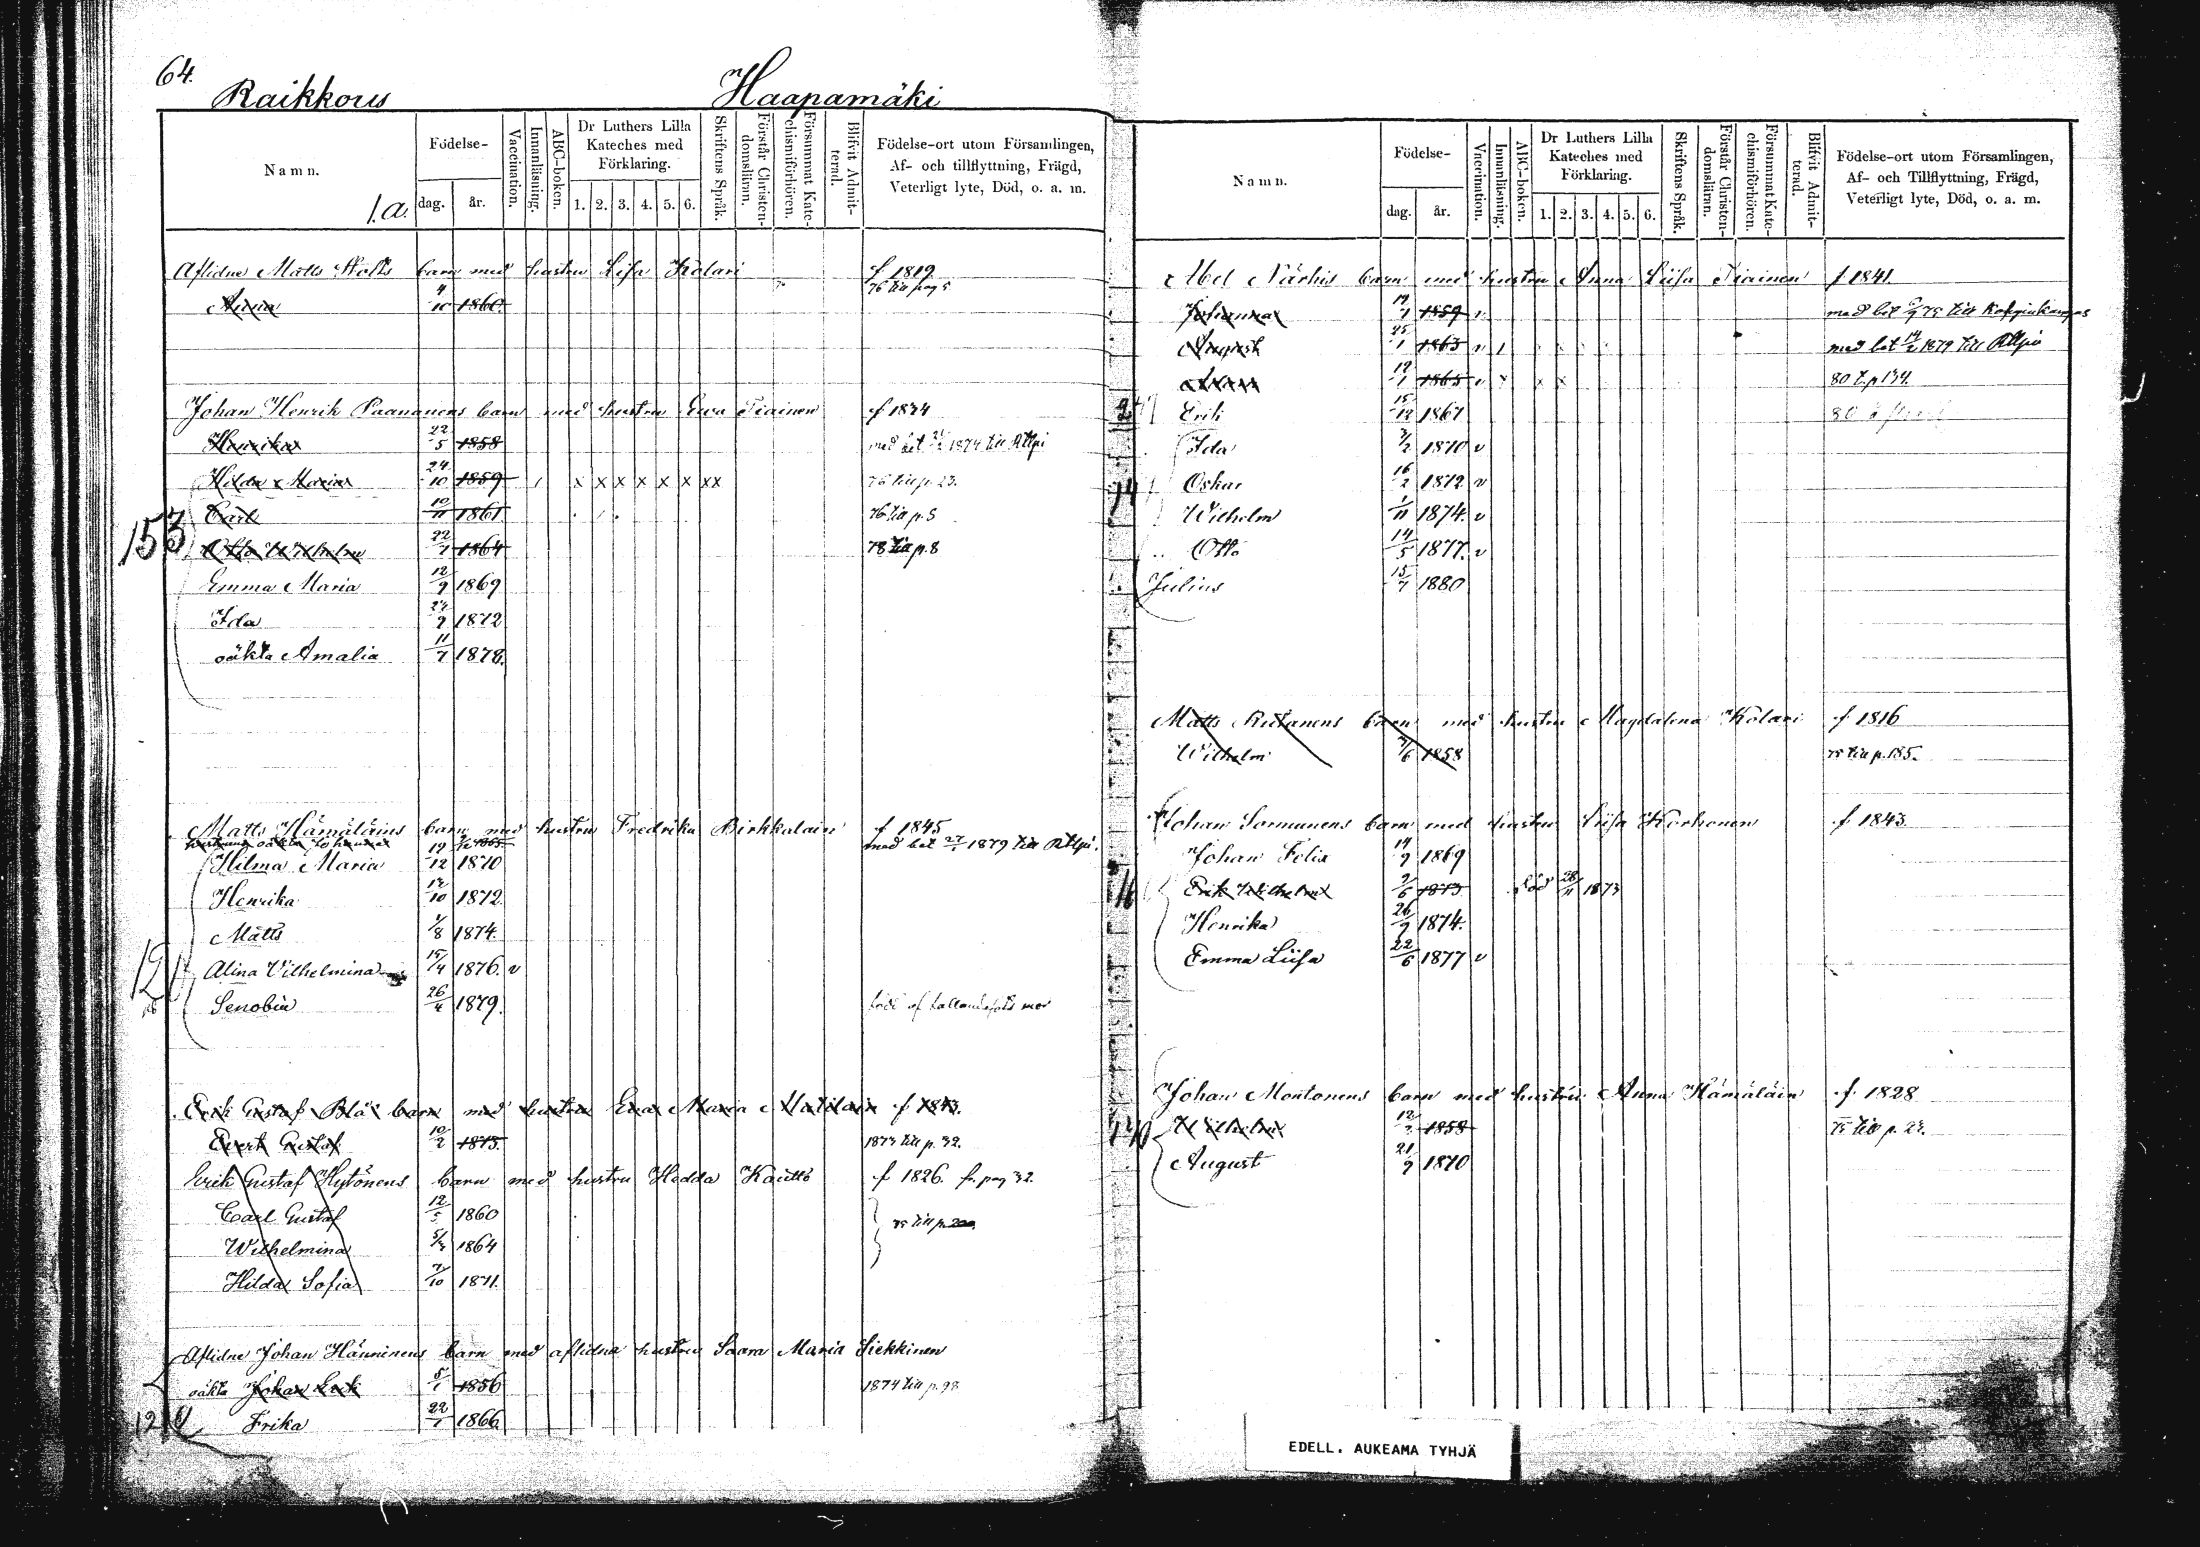 64.
Raikkons Haapamäki
Namn. 1.a.
Födelse-
dag. år.
Vaccination.
Innanläsning.
ABC-boken.
Dr Luthers Lilla Kateches med Förklaring.
1. 2. 3. 4. 5. 6.
Skriftens Språk.
Förstår Christendomsläran.
Försummat Katechismiförhören.
Blifvit Admitterad.
Födelse-ort utom Församlingen,
Af- och tillflyttning, Frägd,
Veterligt lyte, Död, o. a. m.
Aflidne Matts barn med hustru Lisa Kolari f 1819
Anna 4/10 1860. 76 till pag 5
Johan Henrik Paananens barn med hustru Ewa Tiainen f 1834
Henrika 22/5 1858 med bet 1874 till
Hilda Maria 24/10 1859 / x x x x x x xx 76 till p. 23.
Carl 10/11 1861 76 till p. 5
Otto Wilhelm 22/1 1864 78 till p. 8
153
Emma Maria 12/9 1869
Ida 9 1872
oäkta Amalia 11/7 1878.
Matts Hämäläins barn med hustru Fredrika Birkkalain f 1845
hustruns oäkta Johannes 1865 med bet 1879 till
Hilma Maria 19/12 1870
Henrika 10 1872.
Matts 1/8 1874.
Alina Vilhelmina 15/4 1876. v
Senobia 26/4 1879.
Erik Gustaf Blå's barn med hustru Eva Maria Matilain f 1843.
Evert Gustaf 10/2 1873. 1873 till p. 32.
Erik Gustaf Hytönens barn med hustru Hedda Kautto f 1826. fr. pag 32.
Carl Gustaf 12/5 1860
75 till p.
Wilhelmina 1864
Hilda Sofia 7/10 1871.
Aflidne Johan Hänninens barn med aflidna hustru Saara Maria Siekkinen
oäkta Johan Erik 5/1 1856 1874 till p. 98
Frika 22/1 1866.
Namn.
Födelse-
dag. år.
Vaccination.
Innanläsning.
ABC-boken.
Dr Luthers Lilla Kateches med Förklaring.
1. 2. 3. 4. 5. 6.
Skriftens Språk.
Förstår Christendomsläran.
Försummat Katechismiförhören.
Blifvit Admitterad.
Födelse-ort utom Församlingen,
Af- och Tillflyttning, Frägd,
Veterligt lyte, Död, o. a. m.
Abel Närhis barn med hustru Anna Liisa Tiainen f 1841.
Johannes 1859 v med bet 75 till
August 25/1 1863 v / med bet 1879 till
1865 v x x x 80 t. p 134.
Erik 15/12 1867
Ida 3/2 1870 v
Oskar 16/2 1872 v
Wilhelm 1/11 1874. v
Otto 14/5 1877. v
Julius 15/7 1880
Matts Rutanens barn med hustru Magdalena Kolari f 1816
Wilhelm 1858 75 till p. 185.
Johan Sormunens barn med hustru Liisa Korhonen f 1843.
Johan Felix 14/9 1869
Erik Wilhelm 7/6 1873 död 28/11 1873
Henrika 26/9 1874.
Emma Liisa 22/6 1877 v
Johan Montonens barn med hustru Anna Hämäläin f. 1828
Wilhelm 12 1858 75 till p. 22.
August 21/9 1870
EDELL. AUKEAMA TYHJÄ